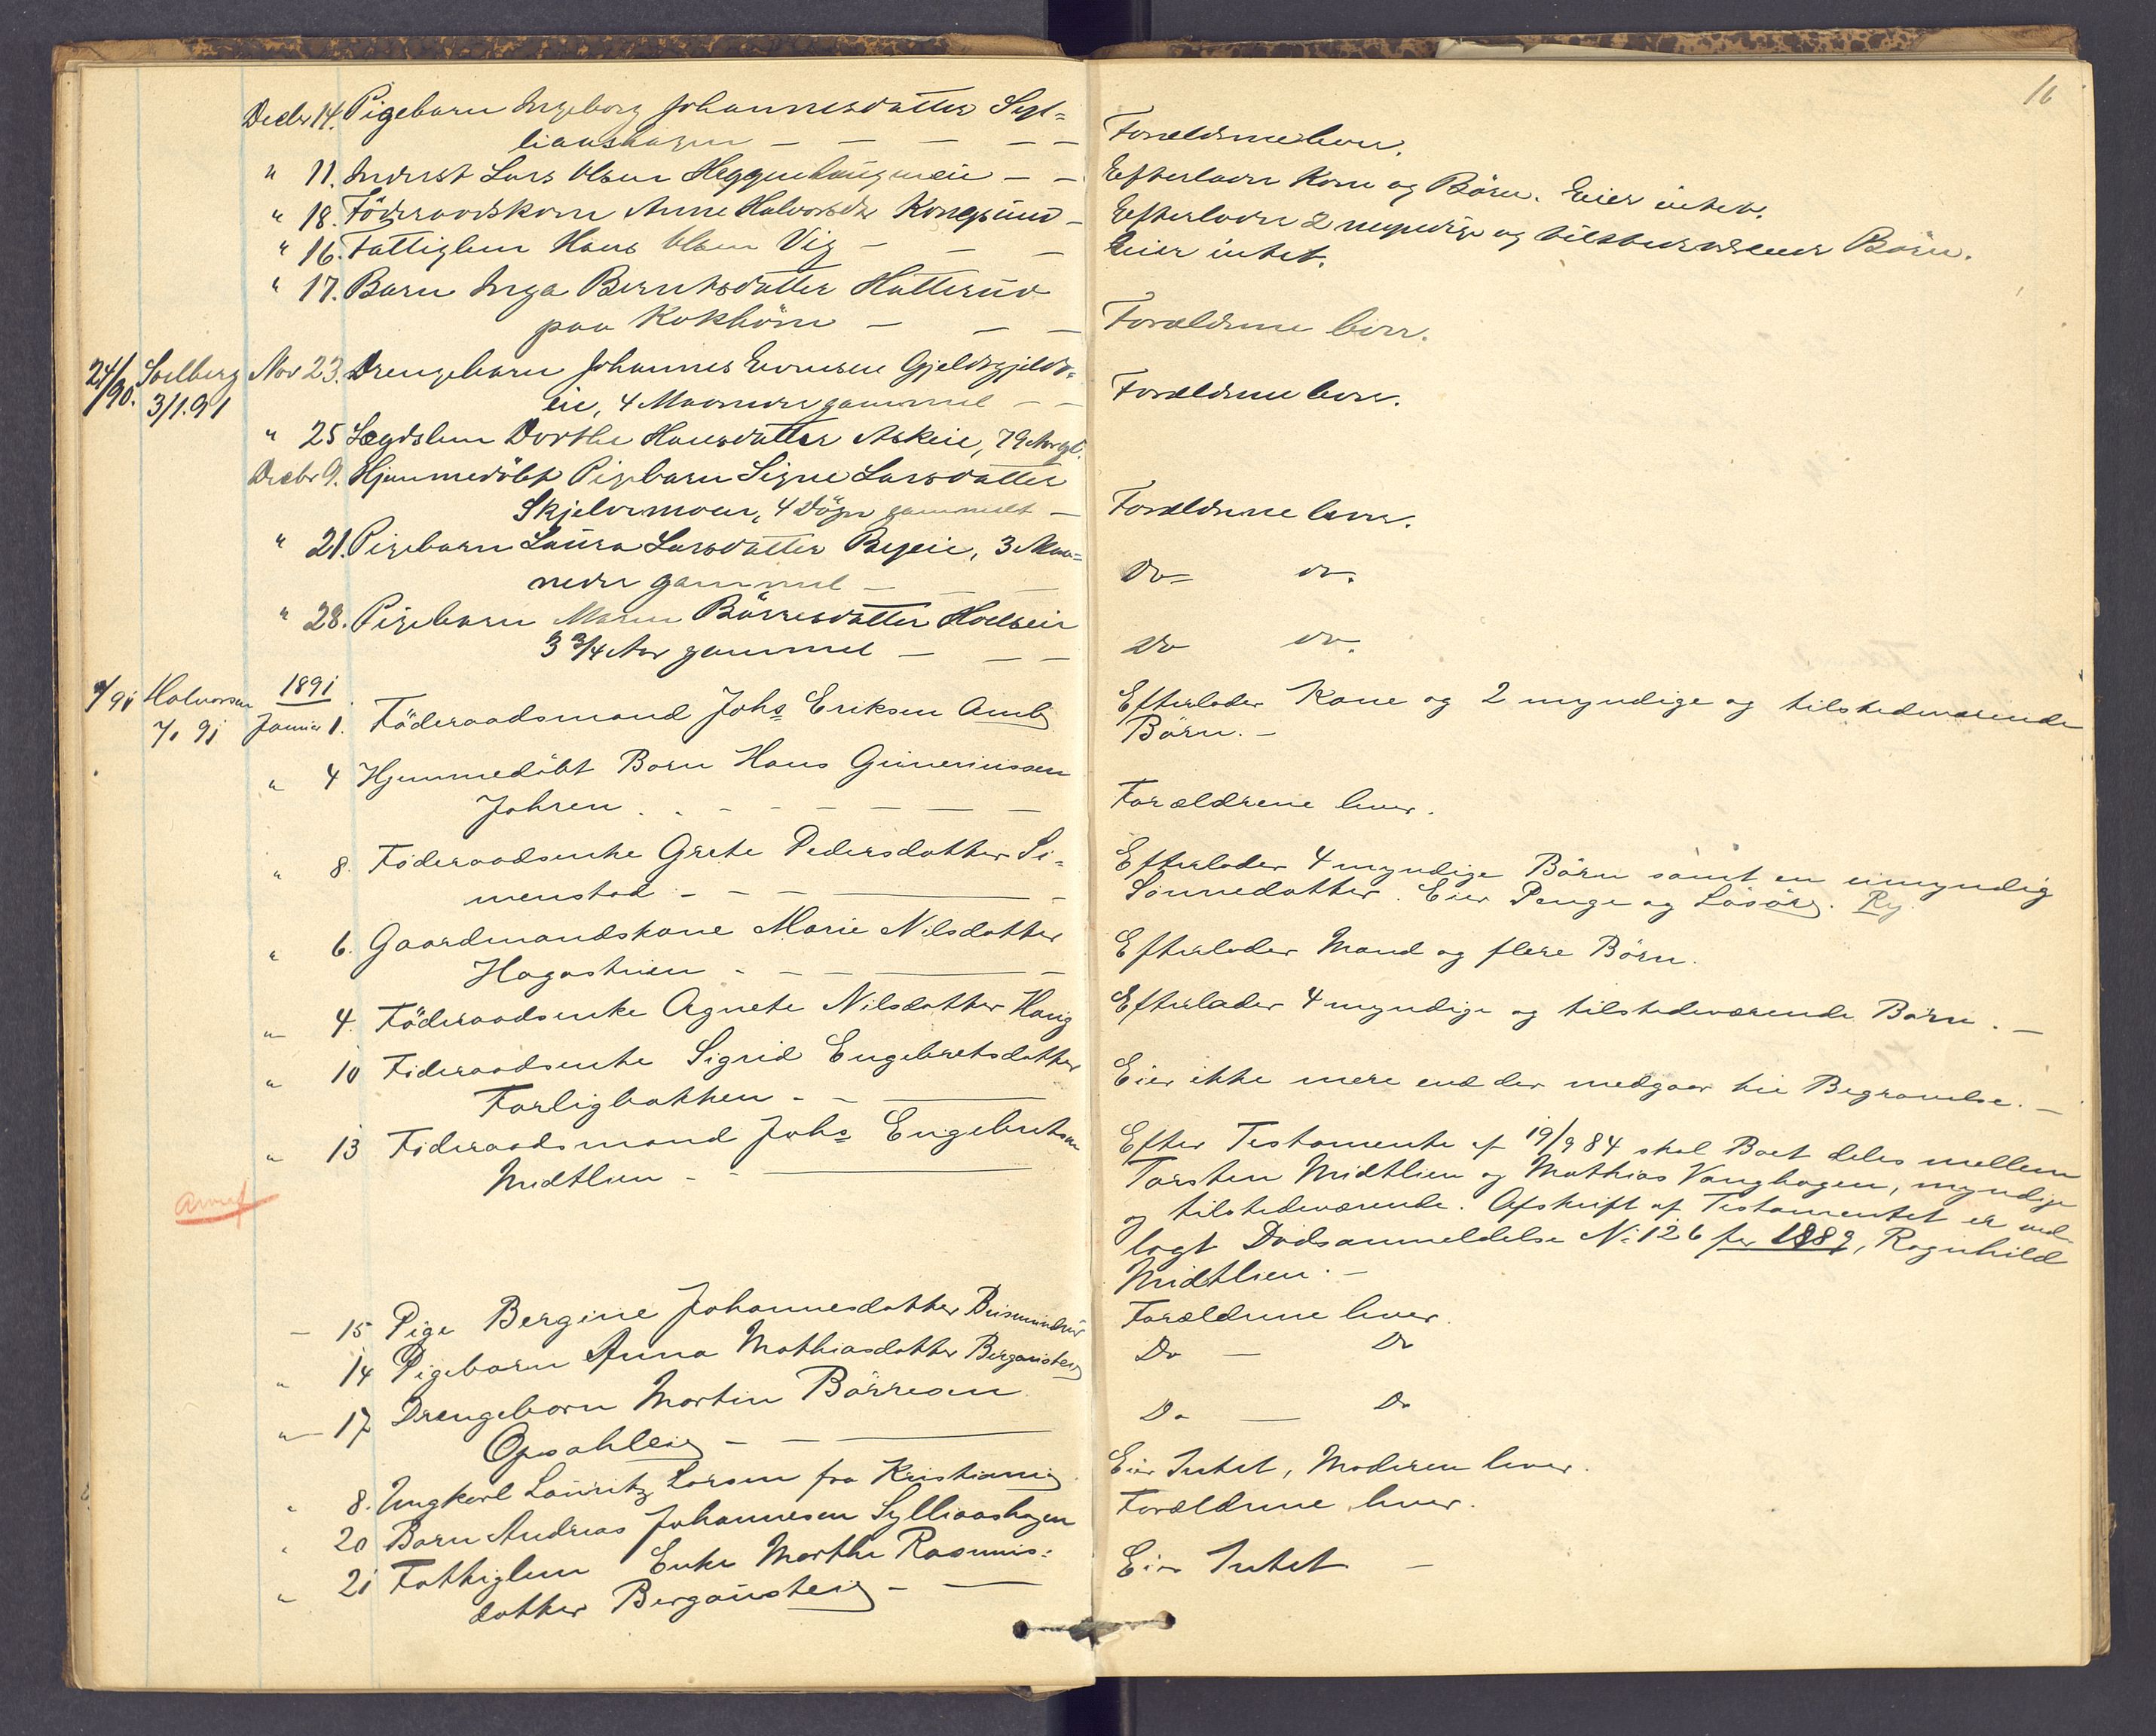 16
Decbr 14. Pigebarn Ingeborg Johannesdatter Syl=
liaashagen — — — — — Forældrene lever.
" 11. Inderst Lars Olsen Heggenhaugmeie — — Efterlader Kone og Börn. Eier intet.
" 18. Föderaadskone Anne Halvorsdr Kongsund — Efterlader 2 myndige og tilstedeværende Börn.
" 16. Fattiglem Hans Olsen Vig — — — Eier intet.
" 17. Barn Inga Berntsdatter Hatterud
paa Kokbörn — — — Forældrene lever.
24/90. Soelberg Nov 23. Drengebarn Johannes Evensen Gjeldsgjeldr=
3/1.91 eie, 4 Maaneder gammel — — Forældrene lever.
" 25 Lægdslem Dorthe Hansdatter Askeie, 79 Aar gl.
Decbr 9. Hjemmedöbt Pigebarn Signe Larsdatter
Skjelvemoen, 4 Dögn gammelt — Forældrene lever.
" 21. Pigebarn Laura Larsdatter Byeie, 3 Maa=
neder gammel — — — Do= do.
" 28. Pigebarn Maren Börresdatter Hoelseie
3 3/4 Aar gammel — — — Do do.
/91 Halvorsen 1891
7/1 91 Januar 1. Föderaadsmand Johs Eriksen Amb Efterlader Kone og 2 myndige og tilstedeværende
Börn. —
" 4 Hjemmedöbt Barn Hans Gunerinssen
Johren . . — — — — — Forældrene lever.
" 8. Föderaadsenke Grete Pedersdatter Si=
menstad — — — — Efterlader 4 myndige Börn samt en umyndig
Sönnedatter. Eier Penge og Lösöre. Rg.
" 6. Gaardmandskone Marie Nilsdatter
Hagastuen — — — — Efterlader Mand og flere Börn.
" 4. Föderaadsenke Agnete Nilsdatter Haug Efterlader 4 myndige og tilstedeværende Börn. —
" 10 Föderaadsenke Sigrid Engebretsdatter
Farligbakken — — — Eier ikke mere end der medgaar til Begravelse. —
" 13 Föderaadsmand Johs Engebretsen
Midtlien — — — Efter Testamente af 19/9 84 skal Boet deles mellem
Torsten Midtlien og Mathias Vanghagen, myndige
Anmf og tilstedeværende. Afskrift af Testamentet er ved-
lagt Dödsanmeldelse No 126 for 1889, Ragnhild
Midtlien. —
— 15 Pige Bergine Johannesdatter Brismundrud Forældrene lever.
" 14 Pigebarn Anna Mathiasdatter Bergausteig Do — Do
" 17 Drengebarn Martin Börresen
Opsahleie — — — Do — Do
" 8. Ungkarl Lauritz Larsen fra Kristiania Eier Intet, Moderen lever.
" 20 Barn Andreas Johannesen Sylliaashagen Forældrene lever.
" 21 Fattiglem Enke Marthe Rasmus=
datter Bergausteig — — Eier Intet —